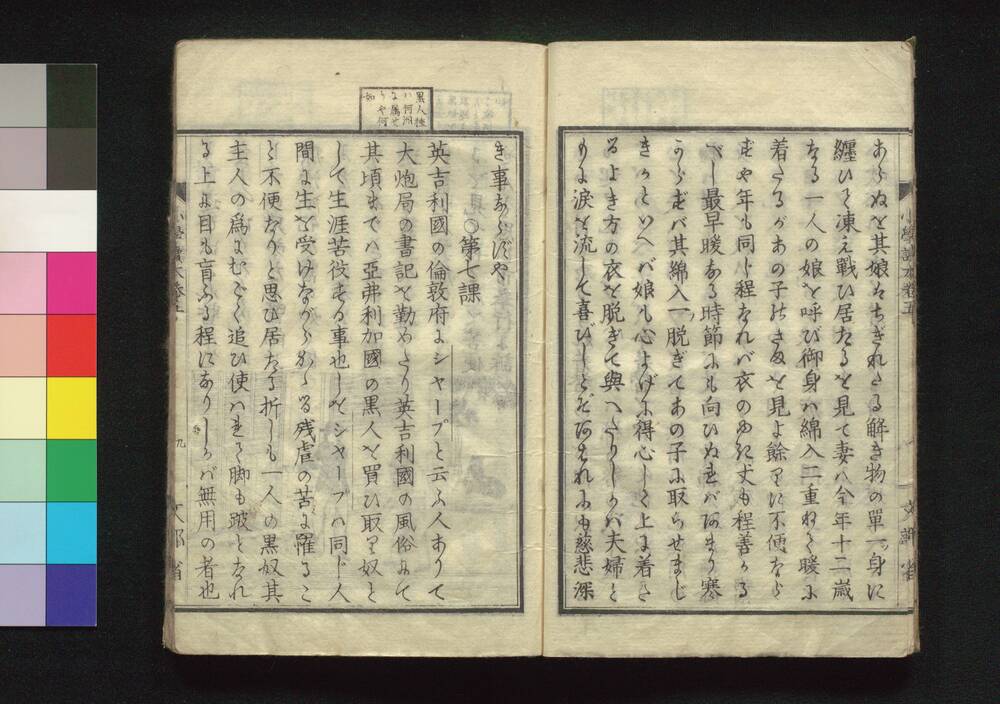 あらぬを其娘はちぎれたる解き物の單一ッ身に
纏ひて凍え戰ひ居たるを見て妻ハ今年十二歳
なる一人の娘を呼び御身ハ綿入二重ねて暖に
着たるがあの子のさまを見よ餘りに不便なら
ずや年も同じ程なれバ衣のゆき丈も程善かる
べし最早暖なる時節にも向ひぬればあまり寒
からずバ其綿入一ッ脱ぎてあの子に取らせまじ
きかといへバ娘も心よげに得心しく上に着た
るよき方の衣を脱ぎて與へたりしかバ夫婦と
もに涙を流して喜びしとぞあはれにも慈悲深
小學讀本卷五
文部省
き事ならずや
○第七課
英吉利國の倫敦府にシャープと云ふ人ありて
大炮局の書記を勤めたり英吉利國の風俗にて
其頃までハ亞弗利加國の黒人を買ひ取り奴と
して生涯苦役する事也しをシャープハ同じ人
間に生を受けながらかゝる残虐の苦に罹るこ
と不便なりと思ひ居たる折しも一人の黒奴其
主人の爲にむごく追ひ使はれて脚も跛となれ
る上に目も盲ふる程にありしかバ無用の者也
黒人種
ハ何洲
に属せ
りや何
如
小學讀本卷五
九
文部省